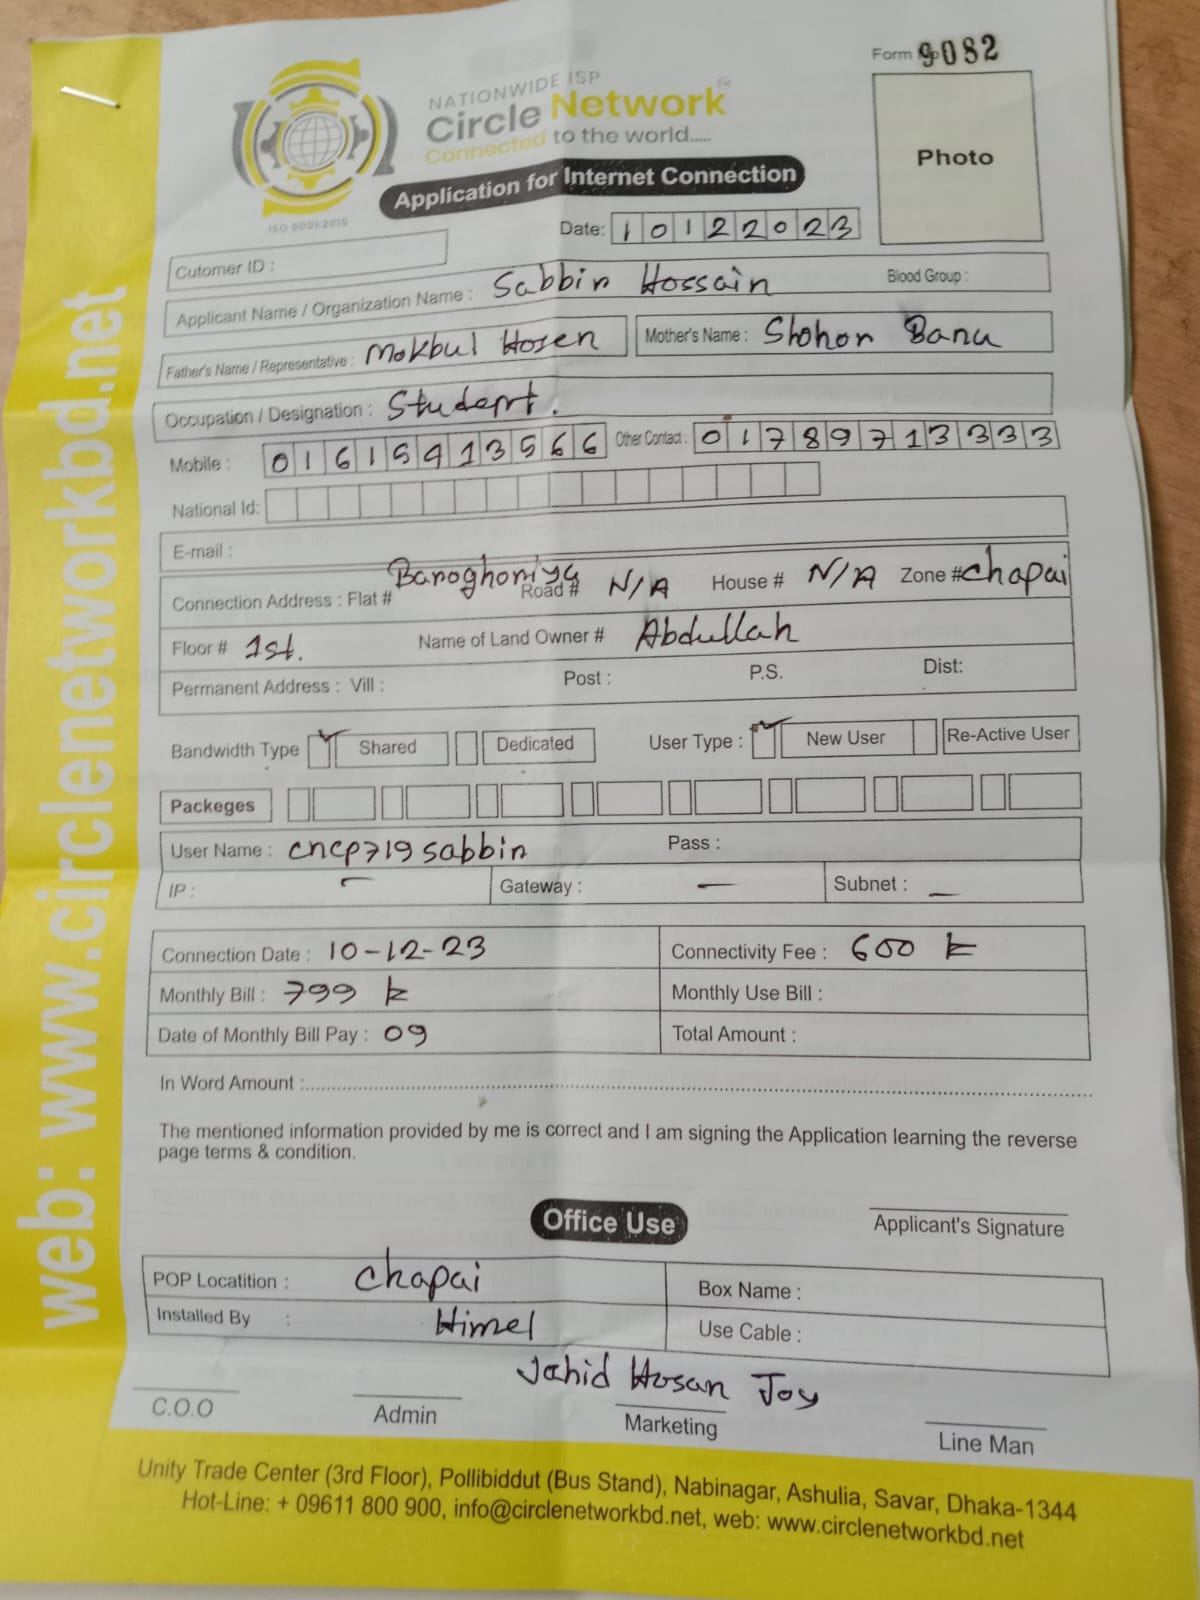 Form No 9082
NATIONWIDE ISP
Circle Network
Connected to the world.....
Application for Internet Connection
ISO 9001:2015
Photo
Date: 10122023
Cutomer ID :
Applicant Name / Organization Name : Sabbir Hossain Blood Group :
Father's Name / Representative : Mokbul Hosen Mother's Name : Shohon Banu
Occupation / Designation : Student.
Mobile : 01615413566 Other Contact : 01789713333
National Id:
E-mail :
Connection Address : Flat # Baroghoriya Road # N/A House # N/A Zone # Chapai
Floor # 1st. Name of Land Owner # Abdullah
Permanent Address : Vill : Post : P.S. Dist:
Bandwidth Type Shared Dedicated User Type : New User Re-Active User
Packeges
User Name : cncp719sabbir Pass :
IP : — Gateway : — Subnet : —
Connection Date : 10-12-23 Connectivity Fee : 600
Monthly Bill : 799 Monthly Use Bill :
Date of Monthly Bill Pay : 09 Total Amount :
In Word Amount :
The mentioned information provided by me is correct and I am signing the Application learning the reverse
page terms & condition.
Office Use
Applicant's Signature
POP Locatition : Chapai Box Name :
Installed By : Himel Use Cable :
Jahid Hosan Joy
C.O.O Admin Marketing Line Man
Unity Trade Center (3rd Floor), Pollibiddut (Bus Stand), Nabinagar, Ashulia, Savar, Dhaka-1344
Hot-Line: + 09611 800 900, info@circlenetworkbd.net, web: www.circlenetworkbd.net
web: www.circlenetworkbd.net